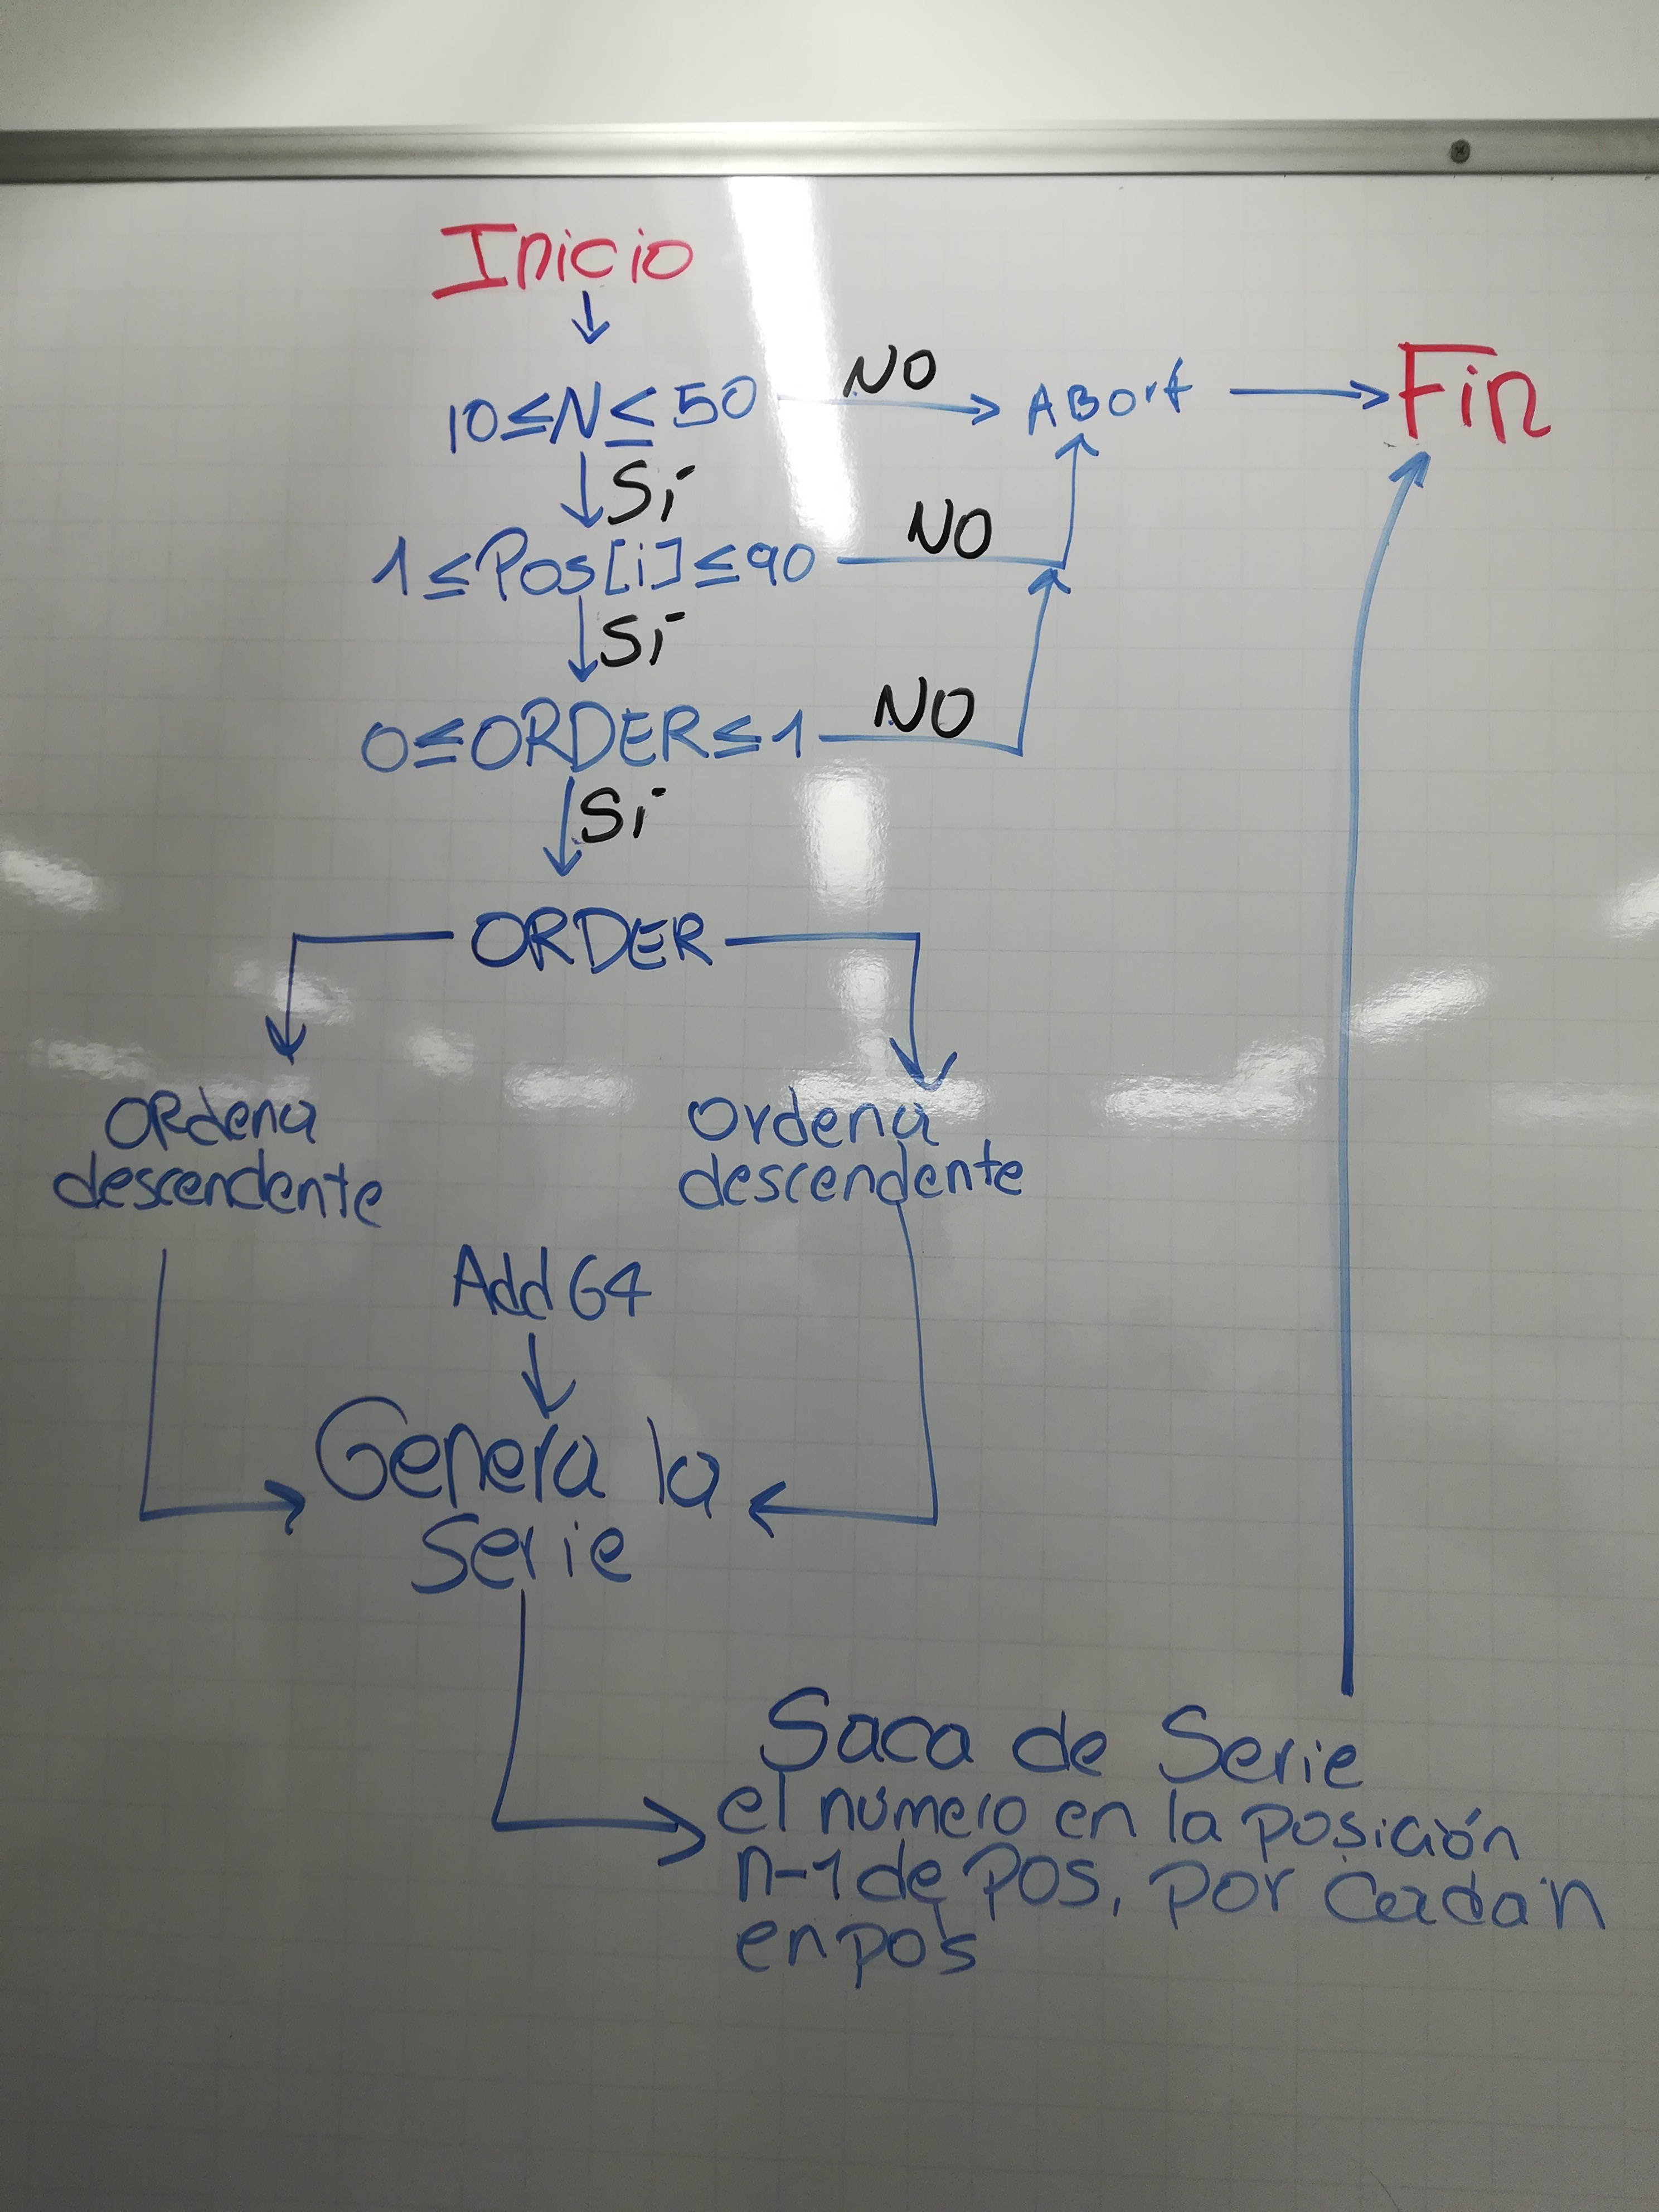 Inicio
10≤N≤50
NO
ABort
Fin
Sí
1≤Pos[i]≤90
NO
Sí
0≤ORDER≤1
NO
Sí
ORDER
ORdena
descendente
Ordena
descendente
Add64
Genera la
serie
Saca de Serie
el número en la posición
n-1 de POS, por cada n
en pos